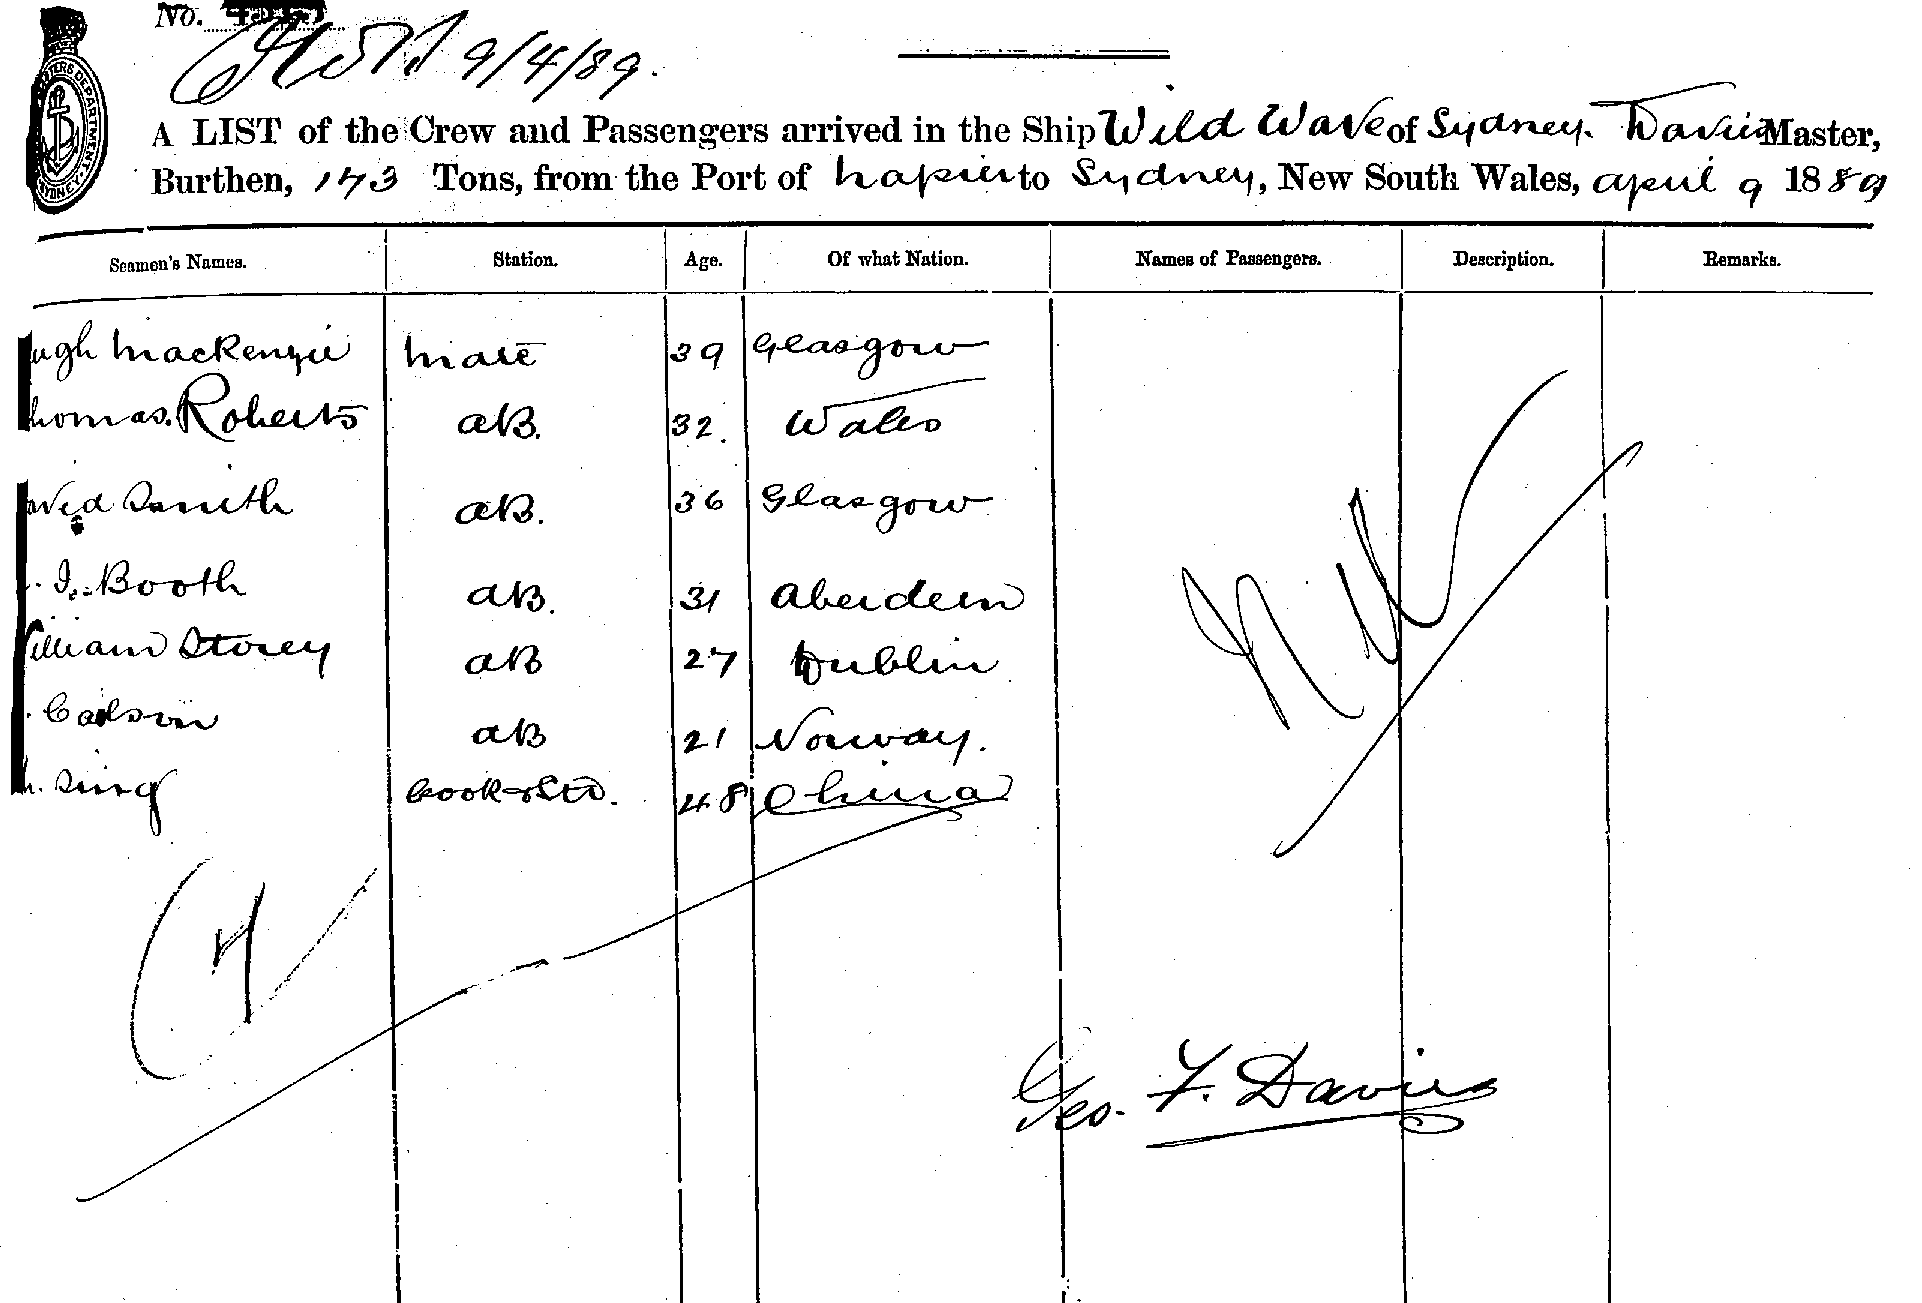 No.
9/4/89.
A LIST of the Crew and Passengers arrived in the Ship Wild Wave of Sydney. Davies Master,
Burthen, 173 Tons, from the Port of Napier to Sydney, New South Wales, April 9 1889
Seamen's Names. Station. Age. Of what Nation. Names of Passengers. Description. Remarks.
ugh Mackenzie Mate 39 Glasgow
homas. Roberts AB. 32. Wales
avid Smith AB. 36 Glasgow
Booth AB. 31 Aberdeen
illiam Storey AB 27 Dublin
Carlson AB 21 Norway.
h. Sing Cook & Std. 48 China
Nil
7
Geo. F. Davies